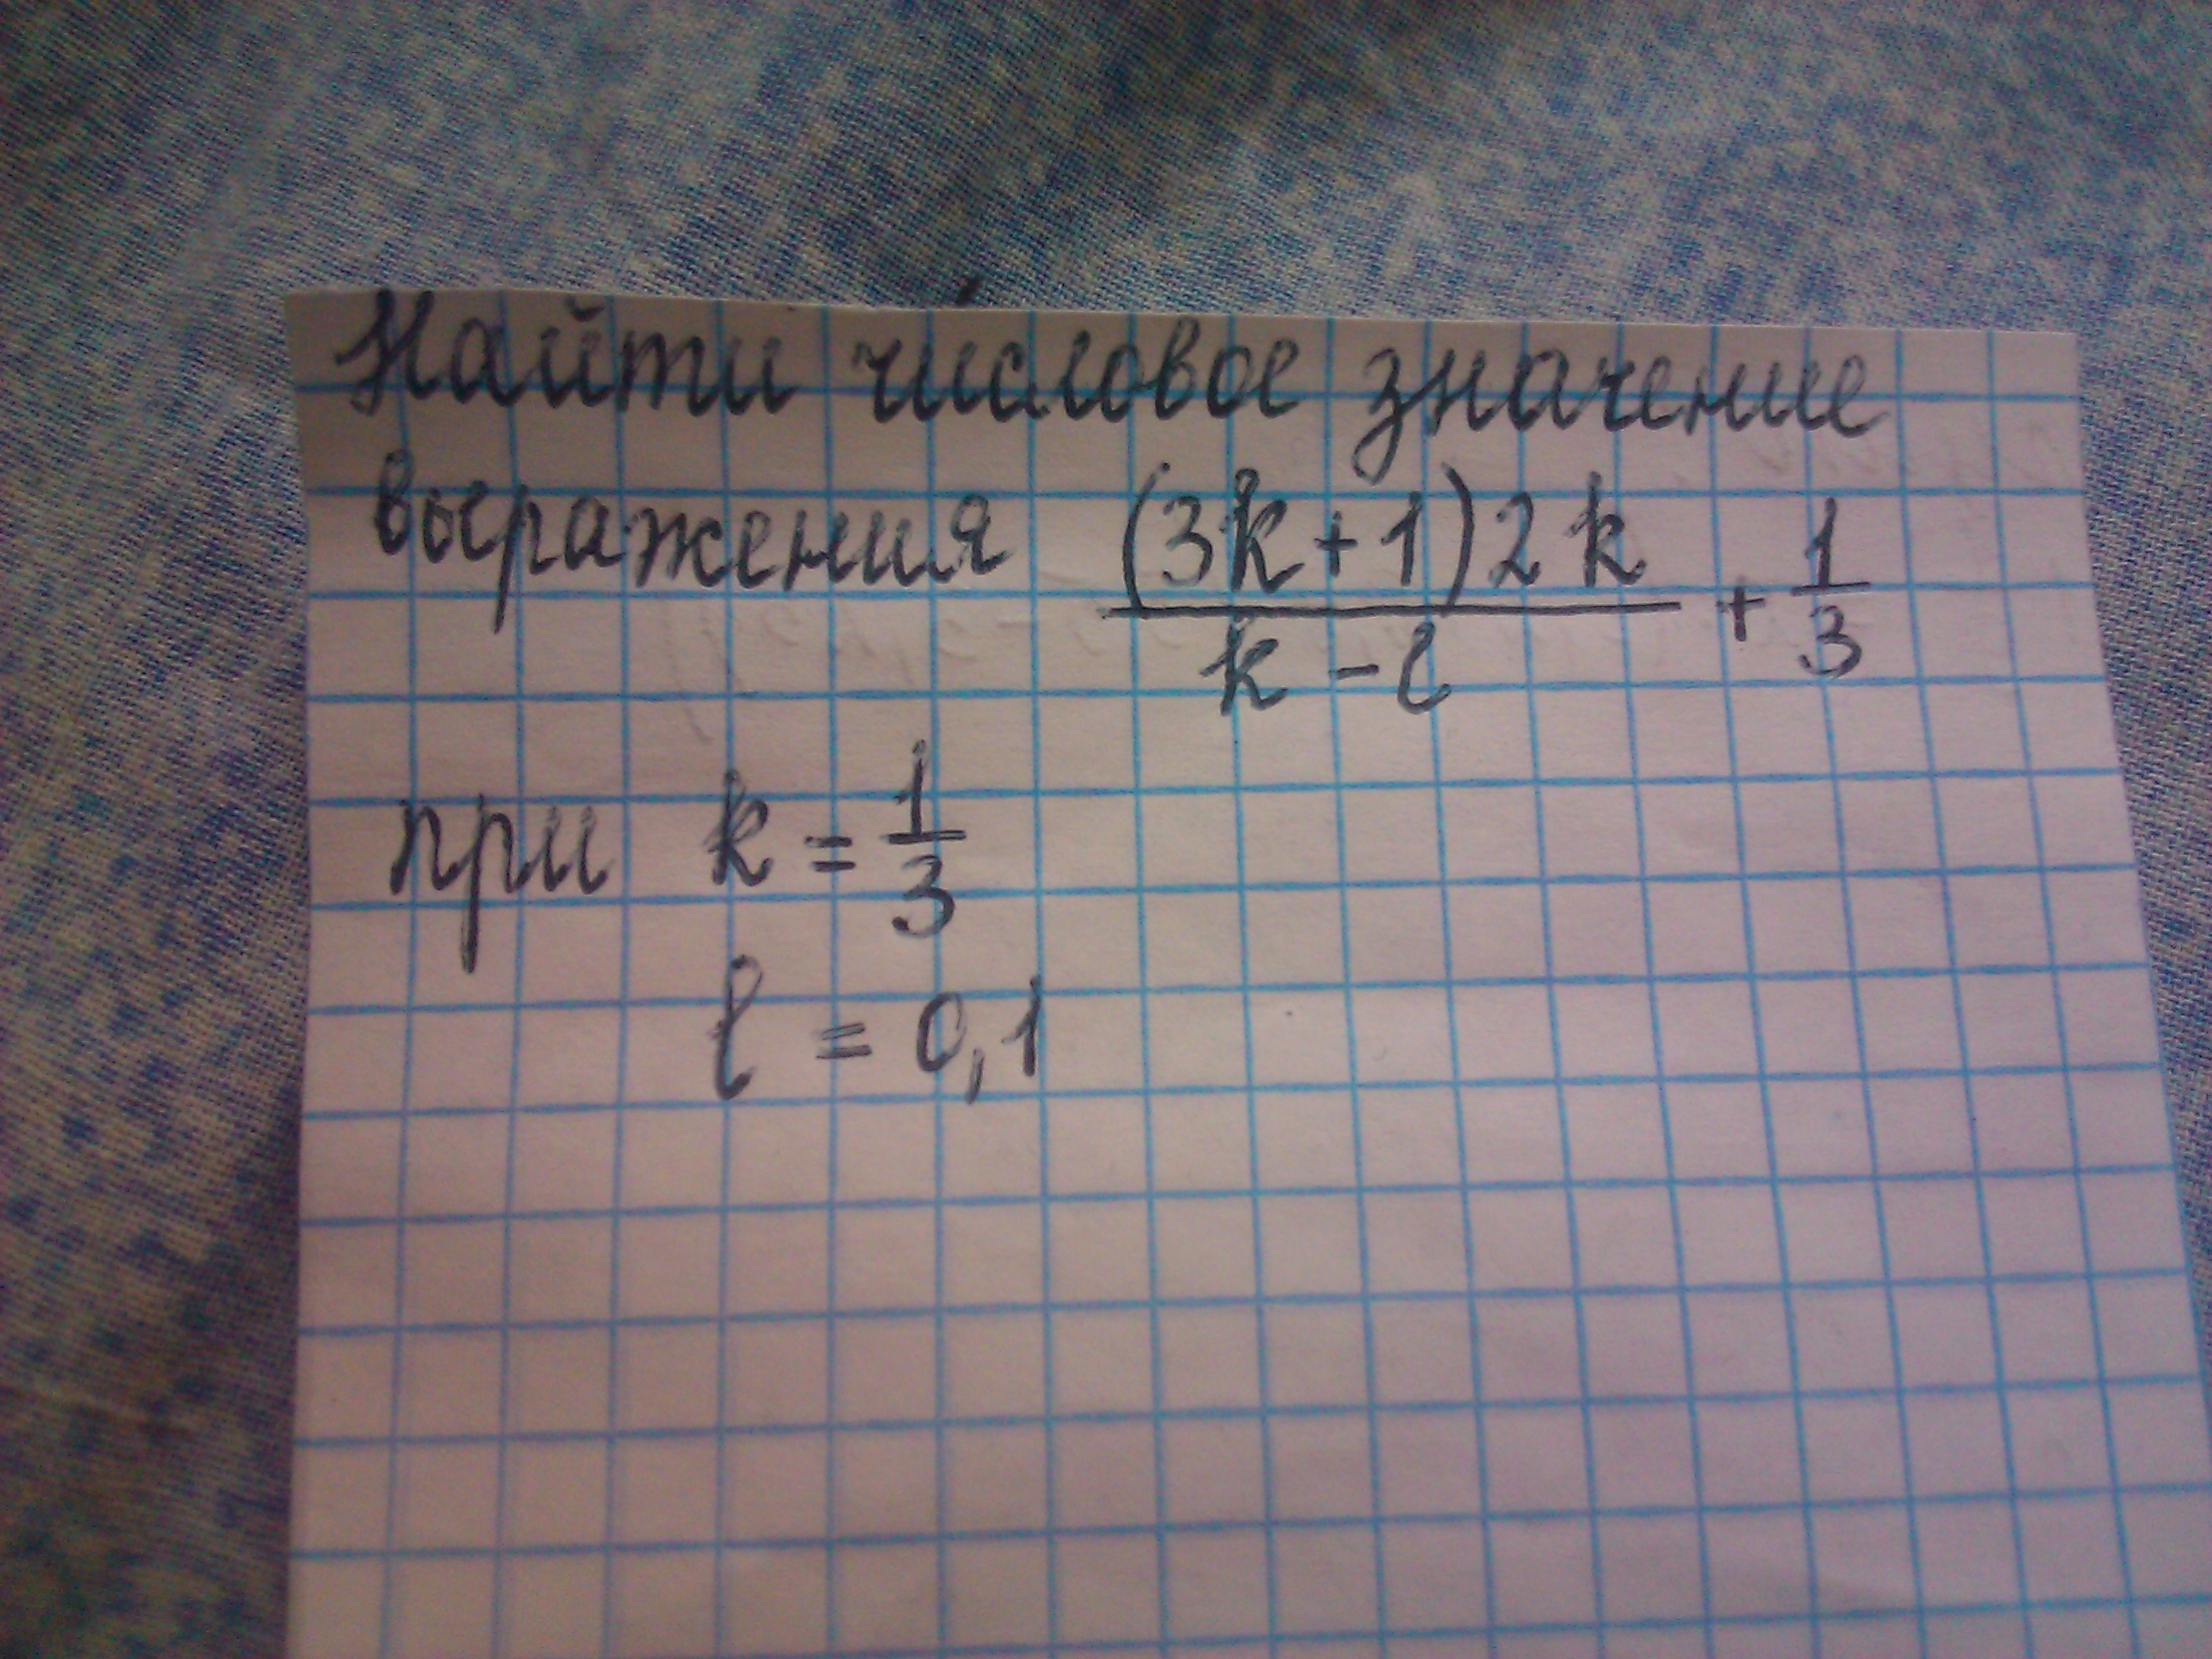 Найти числовое значение
выражения (3k+1)2k / k-l + 1/3
при k = 1/3
l = 0,1